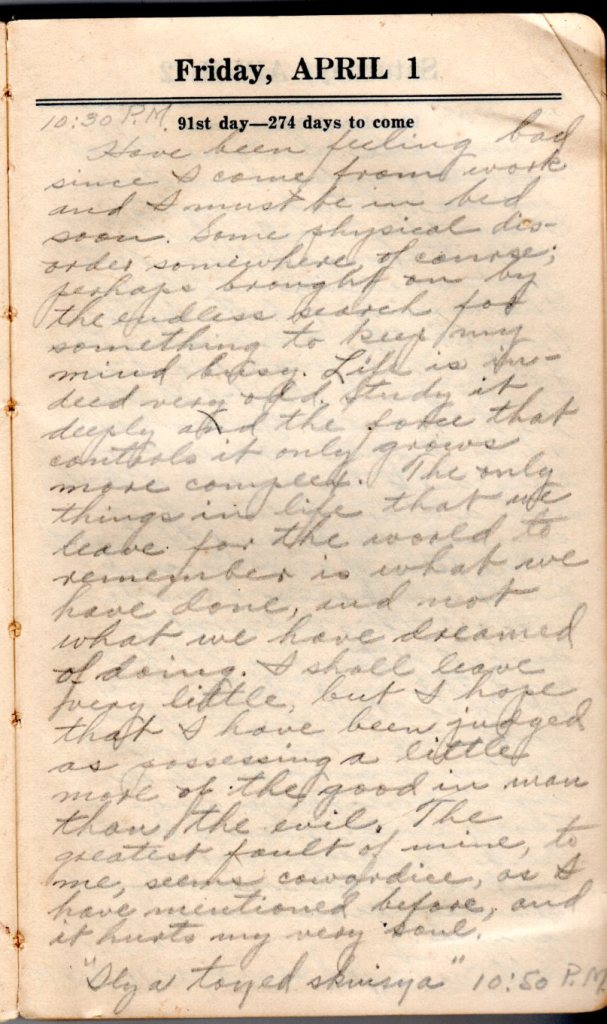 Friday, APRIL 1
10:30 P.M.
91st day—274 days to come
Have been feeling bad
since I come from work
and I must be in bed
soon. Some physical dis-
order somewhere, of course;
perhaps brought on by
the endless search for
something to keep my
mind busy. Life is in-
deed very odd. Study it
deeply and the force that
controls it only grows
more complex. The only
things in life that we
leave for the world to
remember is what we
have done, and not
what we have dreamed
of doing. I shall leave
very little, but I hope
that I have been judged
as possessing a little
more of the good in man
than the evil. The
greatest fault of mine, to
me, seems cowardice, as I
have mentioned before, and
it hurts my very soul.
10:50 P.M.